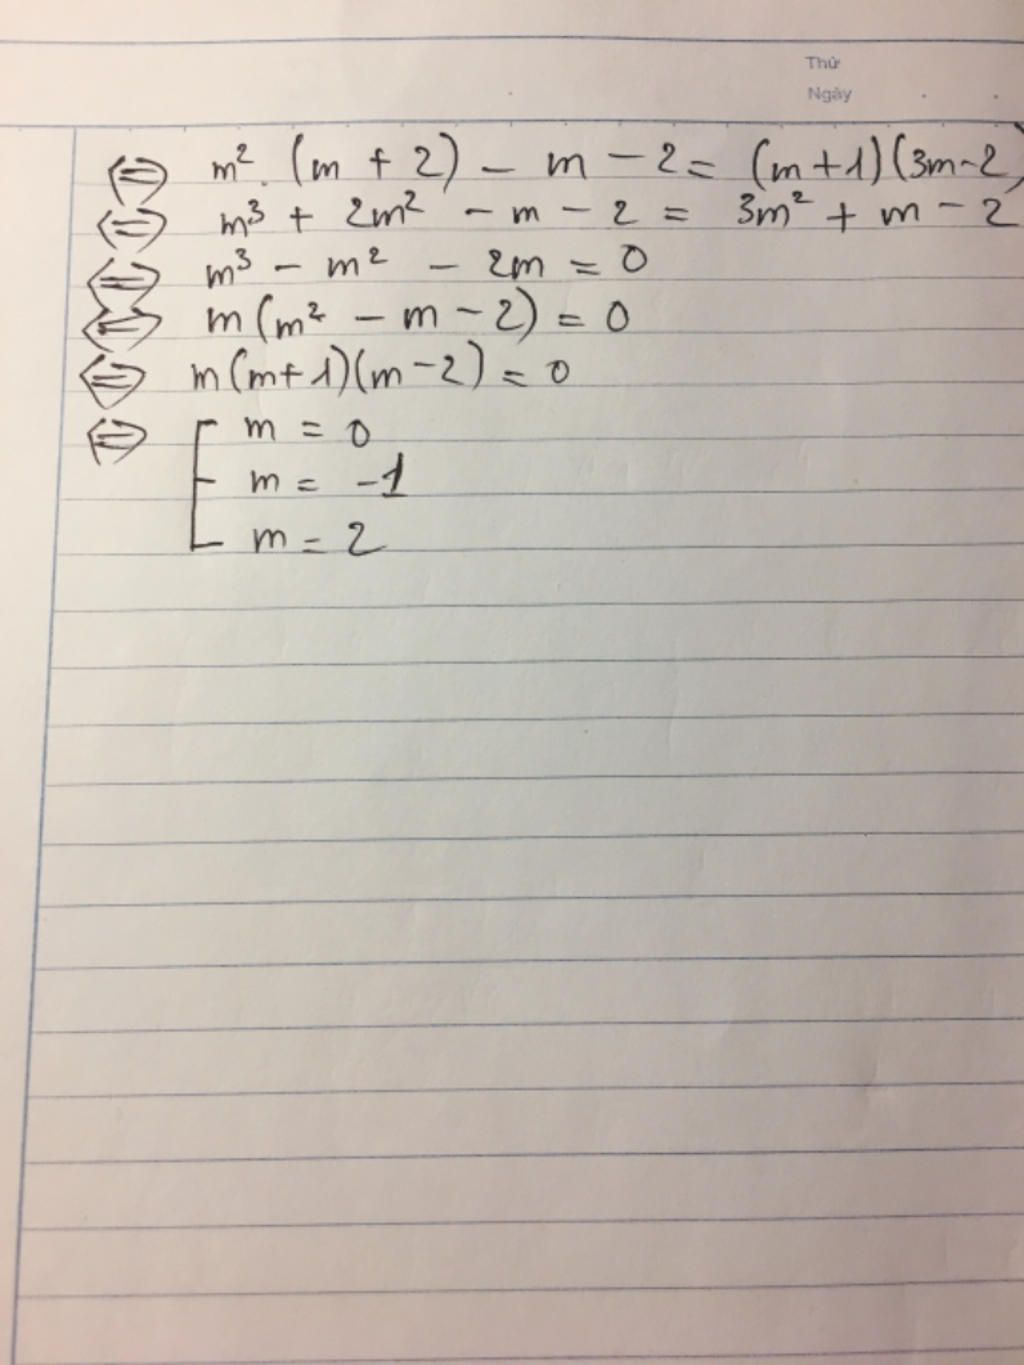 Thứ
Ngày
⇔ m². (m + 2) - m - 2 = (m+1)(3m-2)
⇔ m³ + 2m² - m - 2 = 3m² + m - 2
⇔ m³ - m² - 2m = 0
⇔ m(m² - m - 2) = 0
⇔ m(m+1)(m-2) = 0
⇔ [ m = 0
m = -1
m = 2